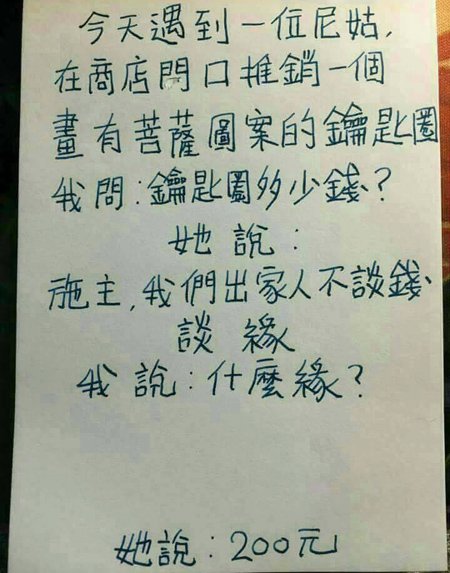 今天遇到一位尼姑,
在商店門口推銷一個
畫有菩薩圖案的鑰匙圈
我問:鑰匙圈多少錢?
她說:
施主,我們出家人不談錢、
談緣
我說:什麼緣?
她說:200元